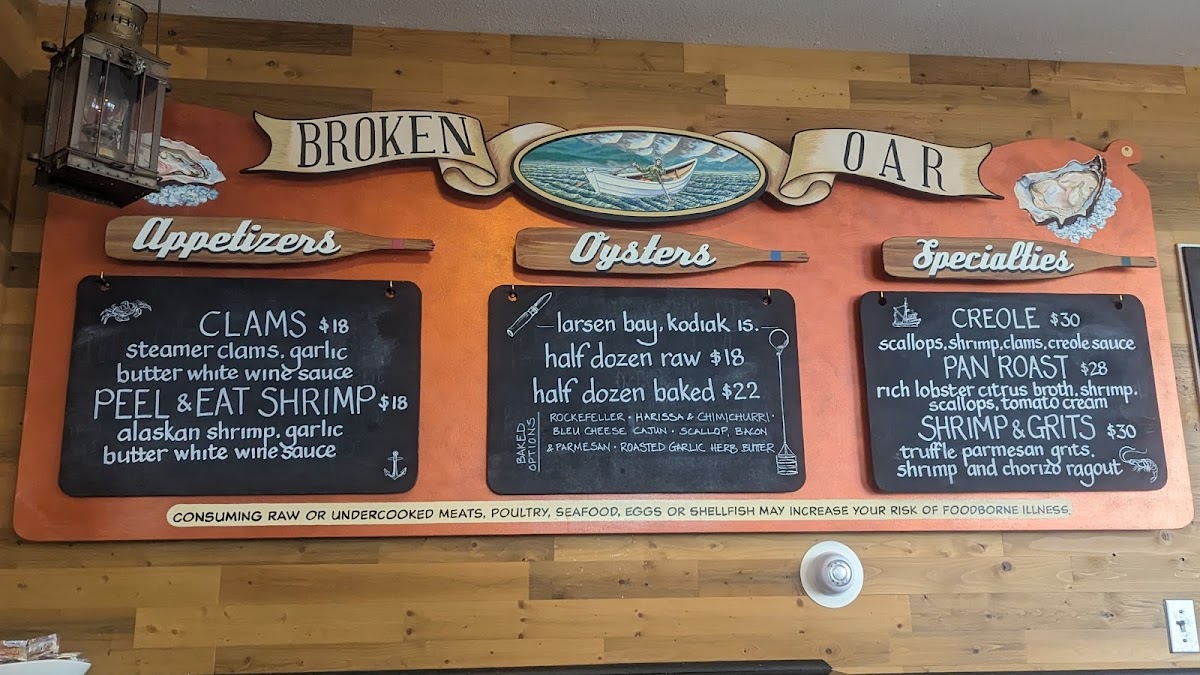 BROKEN OAR
Appetizers
CLAMS $18
steamer clams, garlic
butter white wine sauce
PEEL & EAT SHRIMP $18
alaskan shrimp, garlic
butter white wine sauce
Oysters
larsen bay, kodiak is.
half dozen raw $18
half dozen baked $22
BAKED OPTIONS
ROCKEFELLER · HARISSA & CHIMICHURRI ·
BLEU CHEESE CAJUN · SCALLOP, BACON
& PARMESAN · ROASTED GARLIC HERB BUTTER
Specialties
CREOLE $30
scallops, shrimp, clams, creole sauce
PAN ROAST $28
rich lobster citrus broth, shrimp,
scallops, tomato cream
SHRIMP & GRITS $30
truffle parmesan grits,
shrimp and chorizo ragout
CONSUMING RAW OR UNDERCOOKED MEATS, POULTRY, SEAFOOD, EGGS OR SHELLFISH MAY INCREASE YOUR RISK OF FOODBORNE ILLNESS.